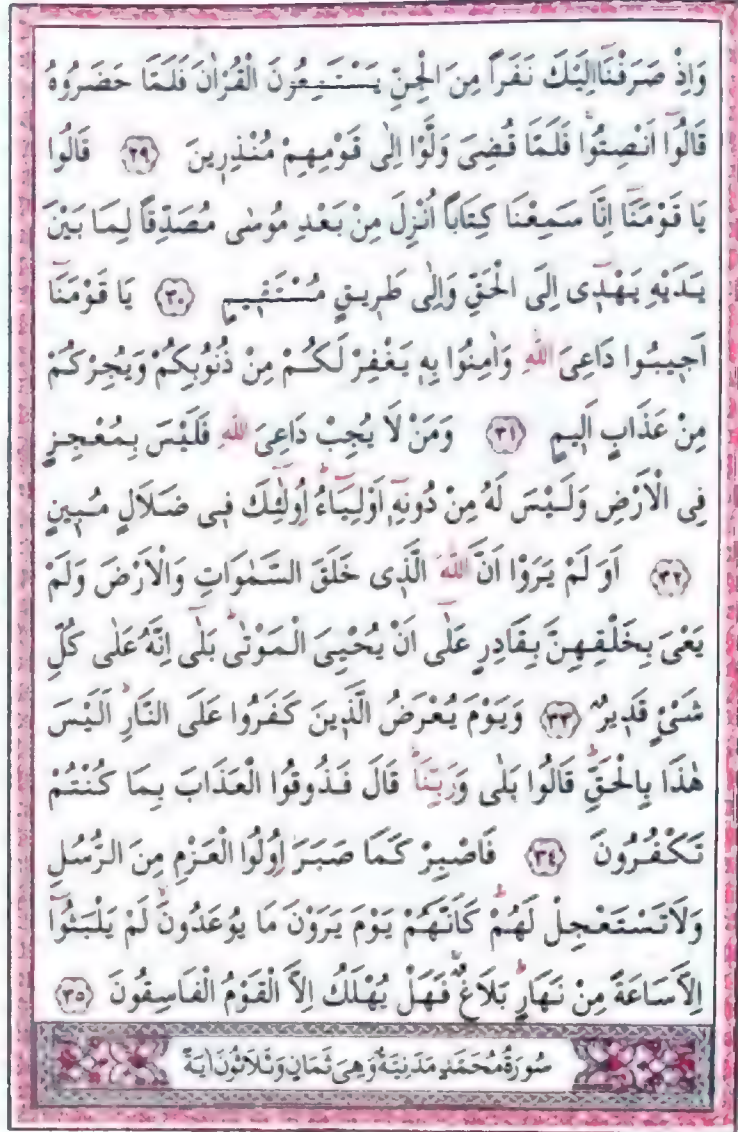 وَاِذْ صَرَفْنَٓا اِلَيْكَ نَفَرًا مِنَ الْجِنِّ يَسْتَمِعُونَ الْقُرْاٰنَ فَلَمَّا حَضَرُوهُ
قَالُٓوا اَنْصِتُواۚ فَلَمَّا قُضِىَ وَلَّوْا اِلٰى قَوْمِهِمْ مُنْذِرٖينَ ﴿٢٩﴾ قَالُوا
يَا قَوْمَنَٓا اِنَّا سَمِعْنَا كِتَابًا اُنْزِلَ مِنْ بَعْدِ مُوسٰى مُصَدِّقًا لِمَا بَيْنَ
يَدَيْهِ يَهْدٖٓى اِلَى الْحَقِّ وَاِلٰى طَرٖيقٍ مُسْتَقٖيمٍ ﴿٣٠﴾ يَا قَوْمَنَٓا
اَجٖيبُوا دَاعِىَ اللّٰهِ وَاٰمِنُوا بِهٖ يَغْفِرْ لَكُمْ مِنْ ذُنُوبِكُمْ وَيُجِرْكُمْ
مِنْ عَذَابٍ اَلٖيمٍ ﴿٣١﴾ وَمَنْ لَا يُجِبْ دَاعِىَ اللّٰهِ فَلَيْسَ بِمُعْجِزٍ
فِى الْاَرْضِ وَلَيْسَ لَهُ مِنْ دُونِهٖٓ اَوْلِيَٓاءُؕ اُو۬لٰٓئِكَ فٖى ضَلَالٍ مُبٖينٍ
﴿٣٢﴾ اَوَ لَمْ يَرَوْا اَنَّ اللّٰهَ الَّذٖى خَلَقَ السَّمٰوَاتِ وَالْاَرْضَ وَلَمْ
يَعْىَ بِخَلْقِهِنَّ بِقَادِرٍ عَلٰٓى اَنْ يُحْيِىَ الْمَوْتٰىؕ بَلٰٓى اِنَّهُ عَلٰى كُلِّ
شَىْءٍ قَدٖيرٌ ﴿٣٣﴾ وَيَوْمَ يُعْرَضُ الَّذٖينَ كَفَرُوا عَلَى النَّارِؕ اَلَيْسَ
هٰذَا بِالْحَقِّؕ قَالُوا بَلٰى وَرَبِّنَاؕ قَالَ فَذُوقُوا الْعَذَابَ بِمَا كُنْتُمْ
تَكْفُرُونَ ﴿٣٤﴾ فَاصْبِرْ كَمَا صَبَرَ اُو۬لُوا الْعَزْمِ مِنَ الرُّسُلِ
وَلَا تَسْتَعْجِلْ لَهُمْؕ كَاَنَّهُمْ يَوْمَ يَرَوْنَ مَا يُوعَدُونَۙ لَمْ يَلْبَثُٓوا
اِلَّا سَاعَةً مِنْ نَهَارٍؕ بَلَاغٌۚ فَهَلْ يُهْلَكُ اِلَّا الْقَوْمُ الْفَاسِقُونَ ﴿٣٥﴾
سُورَةُ مُحَمَّدٍ مَدَنِيَّةٌ وَهِىَ ثَمَانٍ وَثَلَاثُونَ اٰيَةً